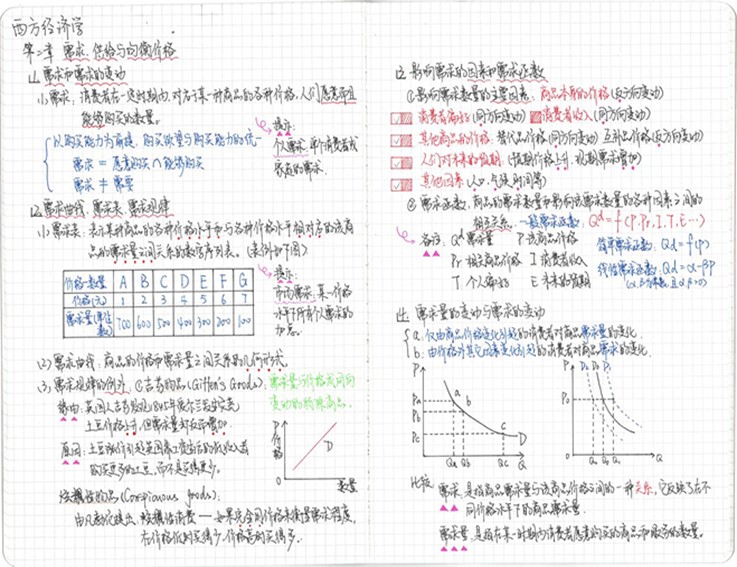 西方经济学
第二章 需求、供给与均衡价格
需求和需求的变动
需求：消费者在一定时期内，对于某一种商品的各种价格，人们愿意而且
能够购买的数量。
以购买能力为前提，购买欲望与购买能力的统一
需求 = 愿意购买∩能够购买
需求 ≠ 需要
提示：
个人需求：单个消费者或
家庭的需求.
需求曲线、需求表、需求规律
需求表：表示某种商品的各种价格水平和与各种价格水平相对应的该商
品的需求量之间关系的数字序列表。(表例如下图)
价格-数量 A B C D E F G
价格(元) 1 2 3 4 5 6 7
需求量(单位数) 700 600 500 400 300 200 100
提示：
市场需求：某一价格
水平下所有个人需求的
加总.
(2) 需求曲线：商品的价格和需求量之间关系的几何形式.
(3) 需求规律的例外 ①吉芬商品(Giffen's Goods)：需求量与价格成同向
变动的特殊商品.
缘由：英国人吉芬发现,1845年爱尔兰发生灾荒
土豆价格上升,但需求量却反而增加
原因：
的买更多的土豆，而不是买得更少。
P
价格
0
D
数量
炫耀性物品(Conspicuous goods):
由凡勃伦提出，炫耀性消费——如果完全用价格来衡量需求程度，
在价格低时买得少，价格高时买得多.
影响需求的因素和需求函数
①影响需求数量的主要因素：商品本身的价格(反方向变动)
消费者偏好(同方向变动) 消费者收入(同方向变动)
其他商品的价格：替代品价格(同方向变动) 互补品价格(反方向变动)
人们对未来的预期：(预期价格上升，现期需求增加)
其它因素(人口、气候、时间等)
② 需求函数：商品的需求数量和影响该需求数量的各种因素之间的
相互关系. 一般需求函数：Qd = f(P,Pr,I,T,E…)
备注：Qd 需求量 P 该商品价格
Pr 相关商品价格 I 消费者收入
T 个人偏好 E 未来的预期
简单需求函数：Qd = f(P)
线性需求函数：Qd = α-βP
(α,β为常数,且α,β>0)
需求量的变动与需求的变动
a. 仅由商品价格变化引起的消费者对商品需求量的变化
b. 由价格外其它因素变化引起的消费者对商品需求的变化.
P
Pa
Pb
Pc
0
a
b
c
D
Qa Qb Qc Q
P
P₀
0
Q
比较
需求：是指商品需求量与该商品价格之间的一种关系，它反映了在不
同价格水平下的商品需求量.
需求量：是指在某一时期内消费者愿意购买的商品和服务的数量。